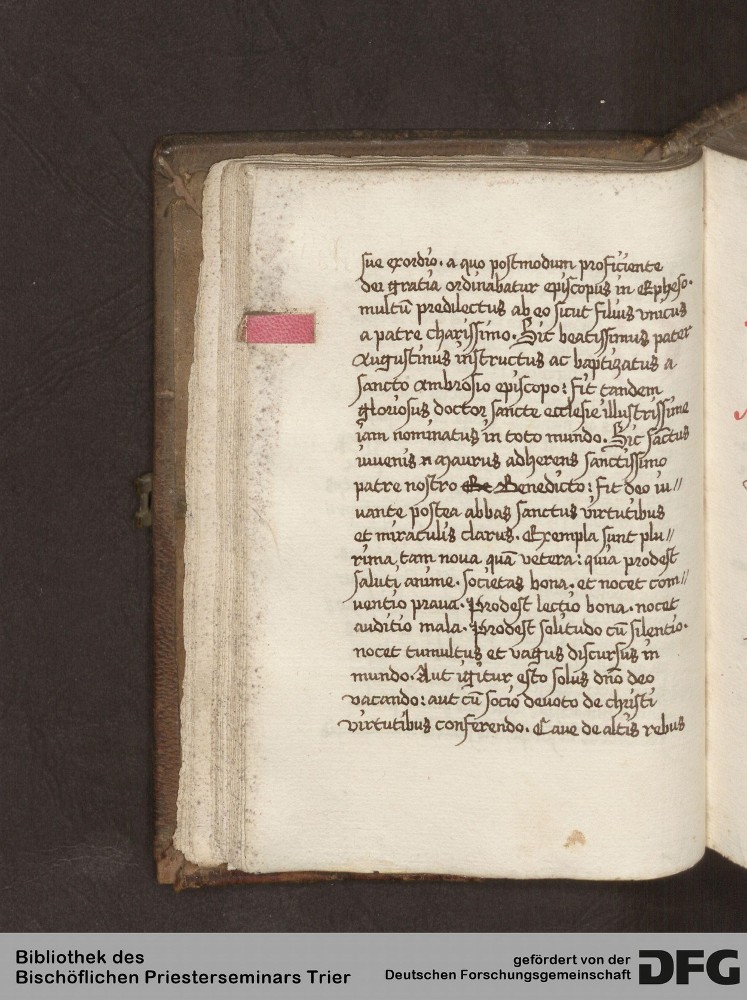 sue exordio. a quo postmodum proficiente
dei gratia ordinabatur episcopus in Epheso.
multū predilectus ab eo sicut filius vnicus
a patre charissimo. Sic beatissimus pater
Augustinus instructus ac baptizatus a
sancto Ambrosio episcopo: fit tandem
gloriosus doctor sancte ecclesie illustrissime
iam nominatus in toto mundo. Sic sāctus
iuuenis Maurus adherens sanctissimo
patre nostro Benedicto: fit deo iu//
uante postea abbas sanctus virtutibus
et miraculis clarus. Exempla sunt plu//
rima tam noua quā vetera: quia prodest
saluti anime. societas bona. et nocet com//
uentio praua. Prodest lectio bona. nocet
auditio mala. Prodest solitudo cū silentio.
nocet tumultus et vagus discursus in
mundo. Aut igitur esto solus dn̄o deo
vacando: aut cū socio deuoto de christi
virtutibus conferendo. Caue de altis rebus
Bibliothek des
Bischöflichen Priesterseminars Trier
gefördert von der
Deutschen Forschungsgemeinschaft
DFG